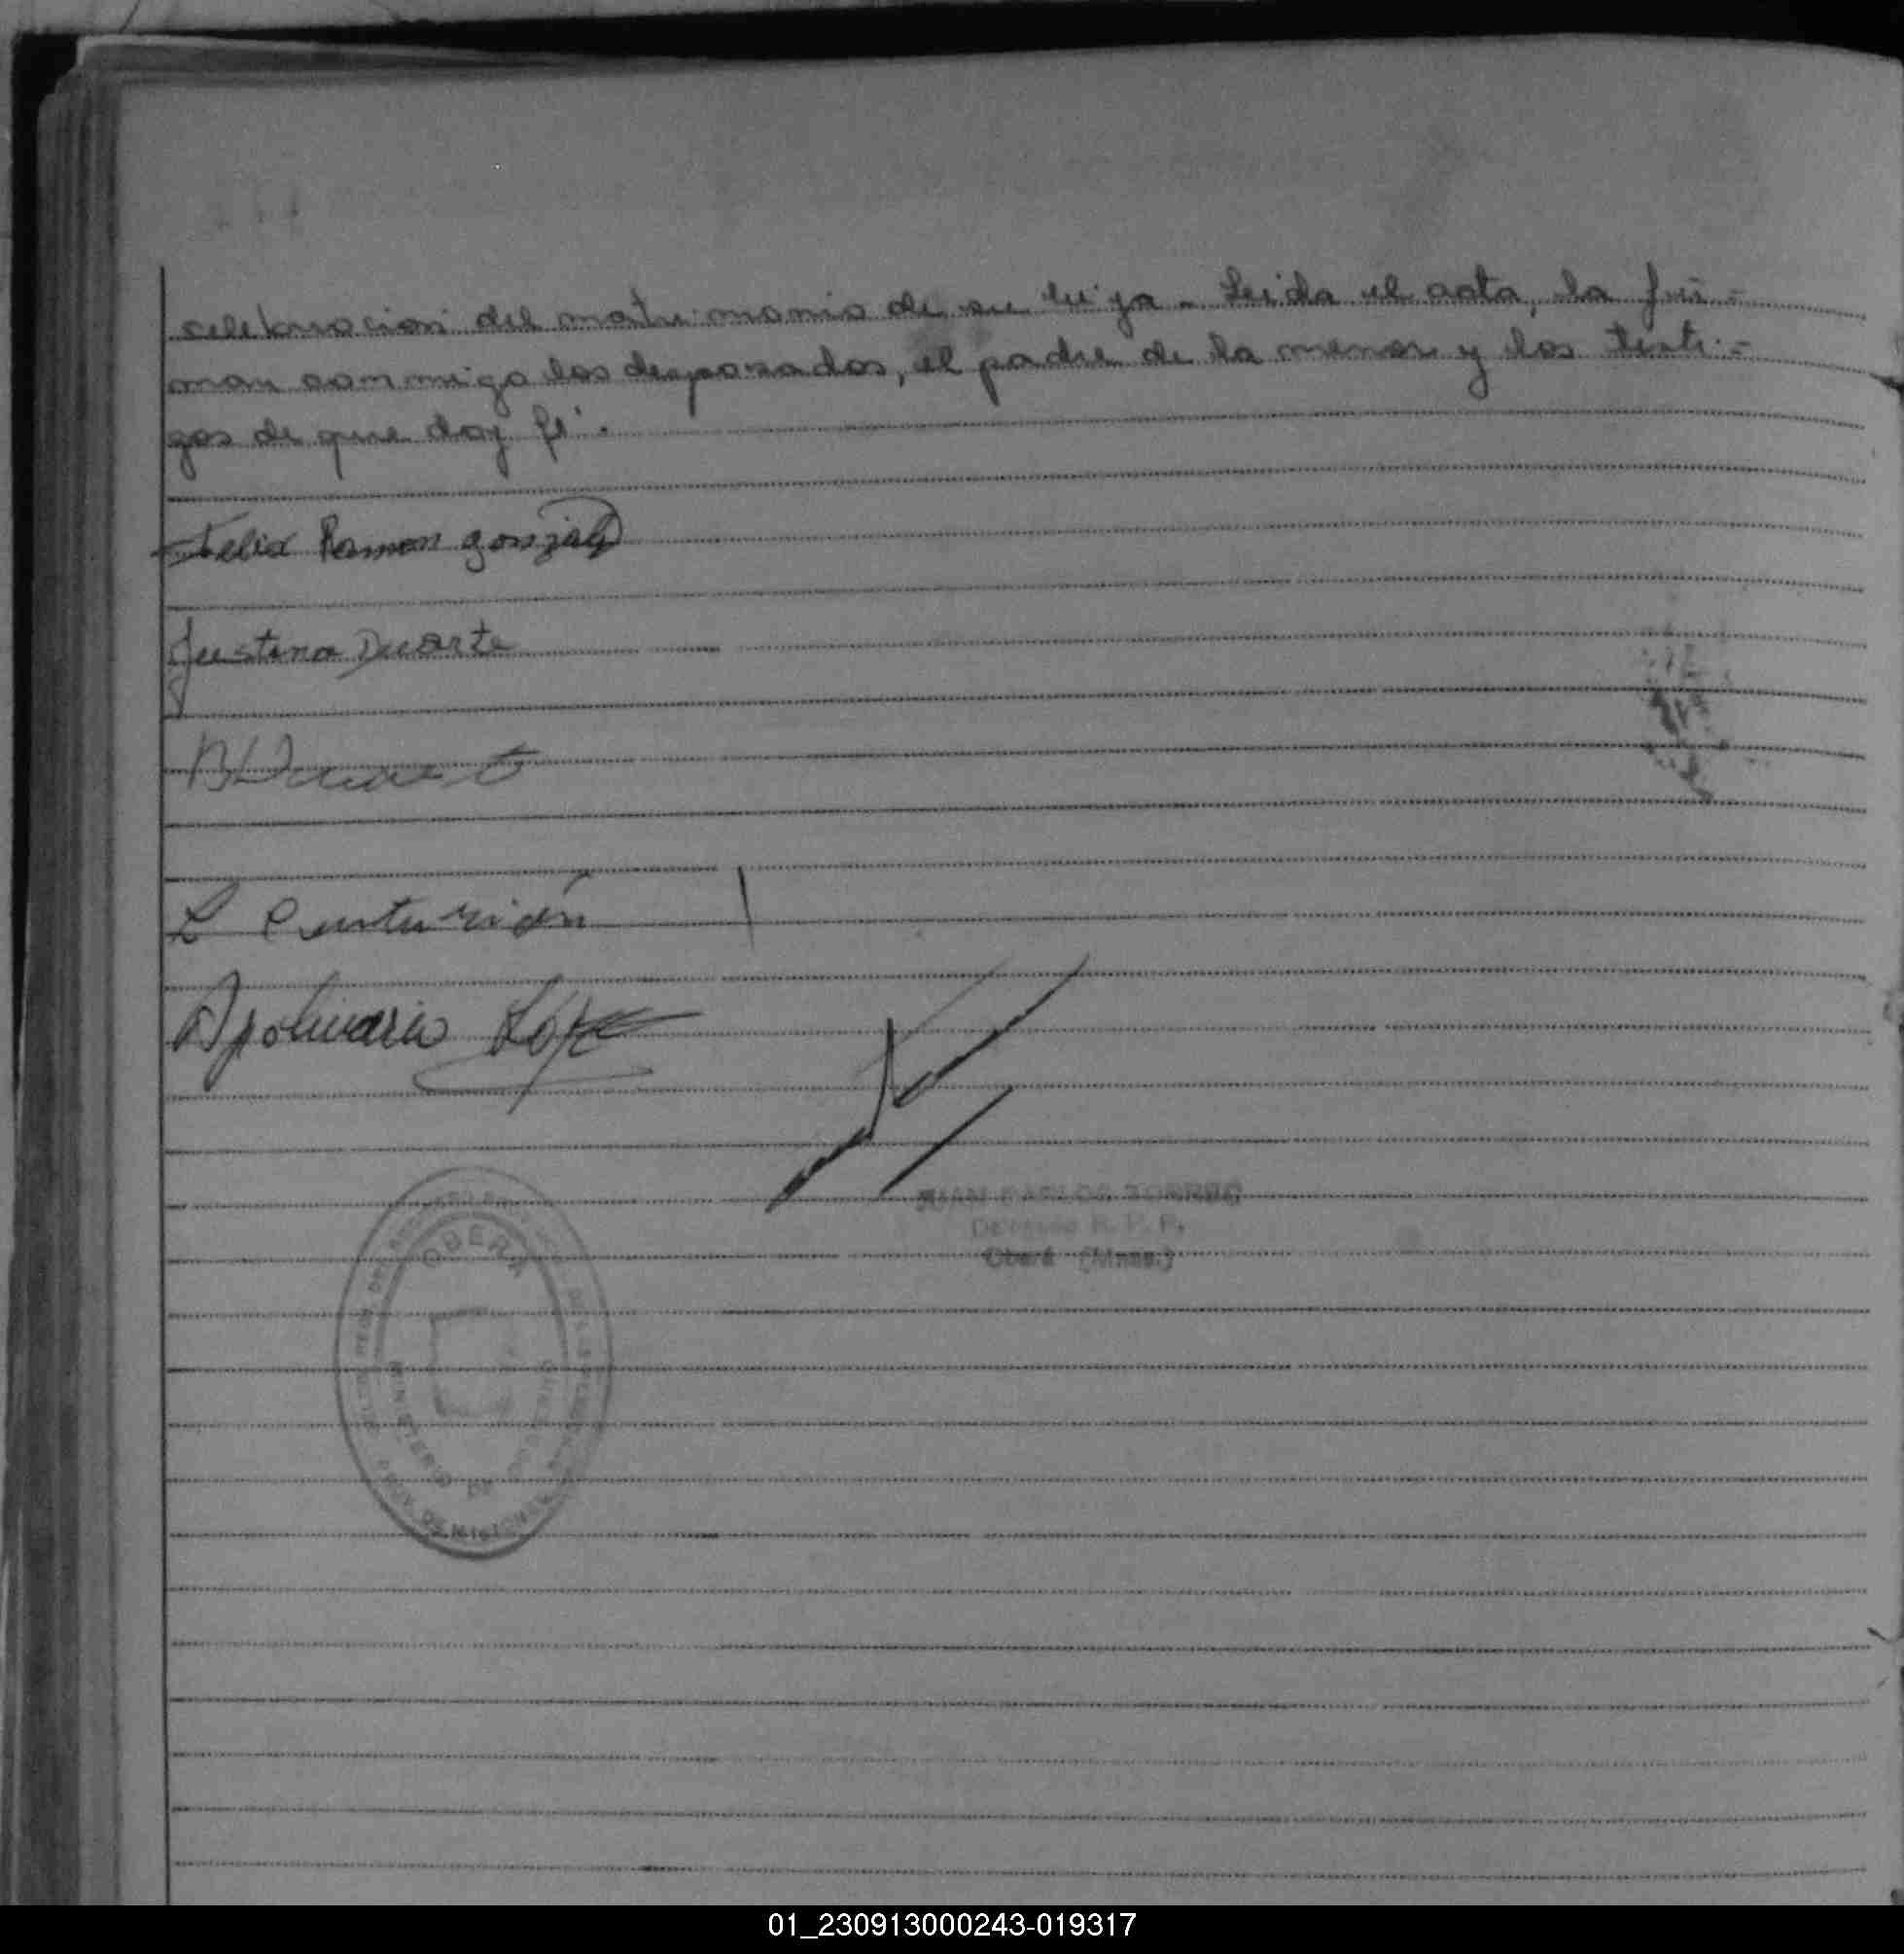 celebracion del matrimonio de su hija. Leida el acta, la fir-
man conmigo los desposados, el padre de la menor y los testi-
gos de que doy fé.
Felix Ramon gonzalez
Justina Duarte
L Centurión
Apolinario López
JUAN CARLOS TORRES
Delegado R. P. P.
Oberá (Mnes.)
OBERA
MINISTERIO DE
PROV. DE MISIONES
01_230913000243-019317